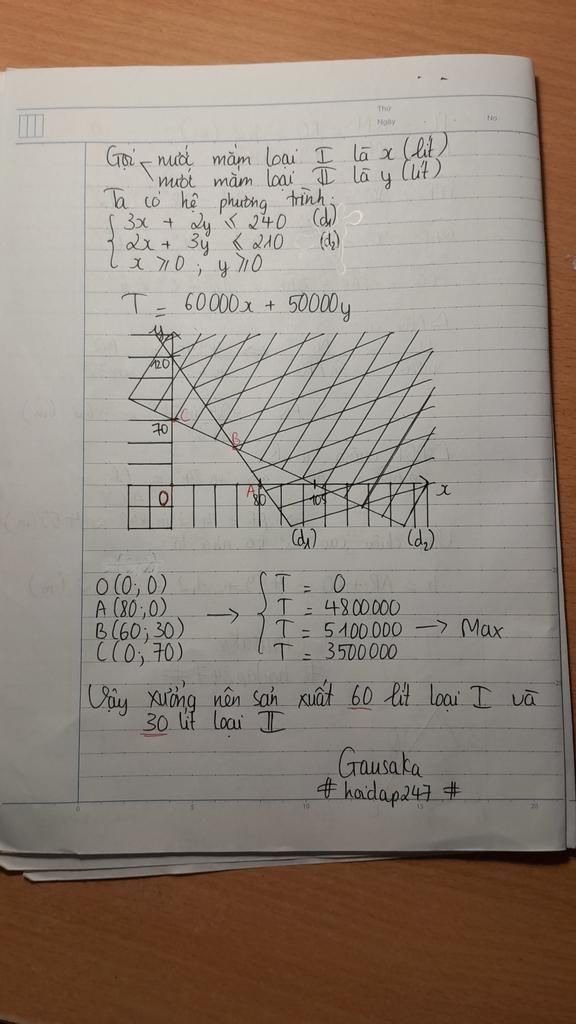 Thứ
Ngày
No
Gọi nước mắm loại I là x (lít)
nước mắm loại II là y (lít)
Ta có hệ phương trình:
3x + 2y ≤ 240 (d1)
2x + 3y ≤ 210 (d2)
x ≥ 0 ; y ≥ 0
T = 60000x + 50000y
y
120
C
70
B
O A 80 105 x
(d1) (d2)
O (0; 0) T = 0
A (80; 0) → T = 4800000
B (60; 30) T = 5100000 → Max
C (0; 70) T = 3500000
Vậy xưởng nên sản xuất 60 lít loại I và
30 lít loại II
Gausaka
# hoidap247 #
0 5 10 15 20